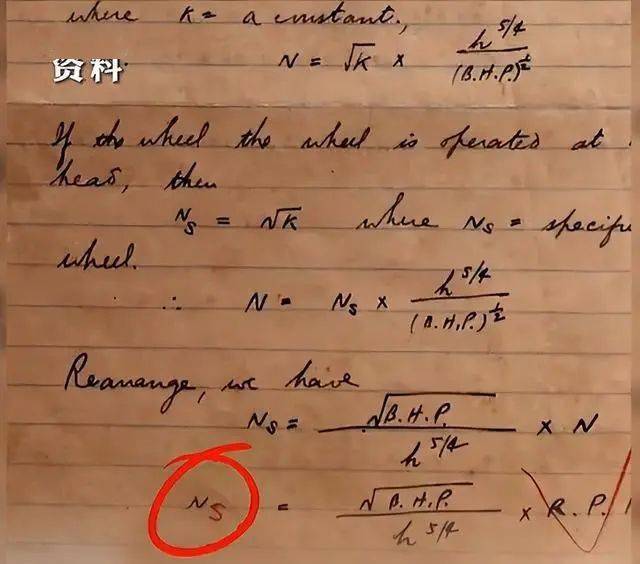 where K = a constant.,
N = √K × h^5/4 / (B.H.P.)^½
资料
If the wheel the wheel is operated at
head, then
N_S = √K where N_S = specific
wheel.
∴ N = N_S × h^5/4 / (B.H.P.)^½
Rearrange, we have
N_S = √B.H.P. / h^5/4 × N
N_S = √B.H.P. / h^5/4 × R.P.